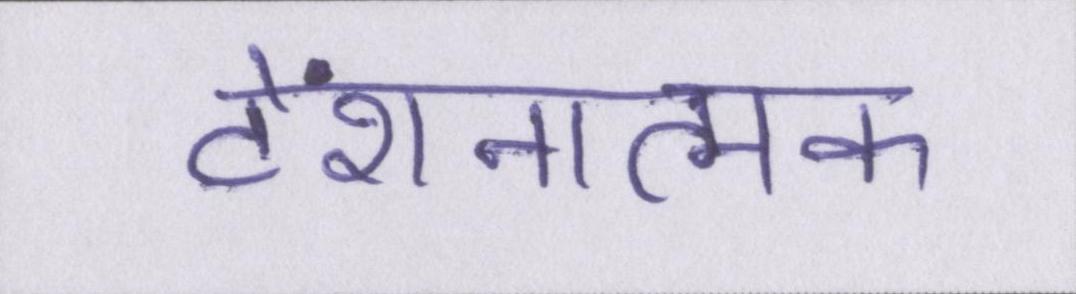 टेंशनात्मक